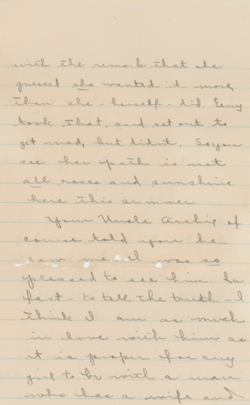 with the remark that she
guessed she wanted it more
than she - herself - did. Eeny
took that and set out to
get mad, but didn't. So you
see her path is not
all roses and sunshine
here this summer.
Your Uncle Archie of
course told you he
saw me. I was so
pleased to see him. In
fact - to tell the truth - I
think I am as much
in love with him as
it is proper for any
girl to be with a man
who has a wife and